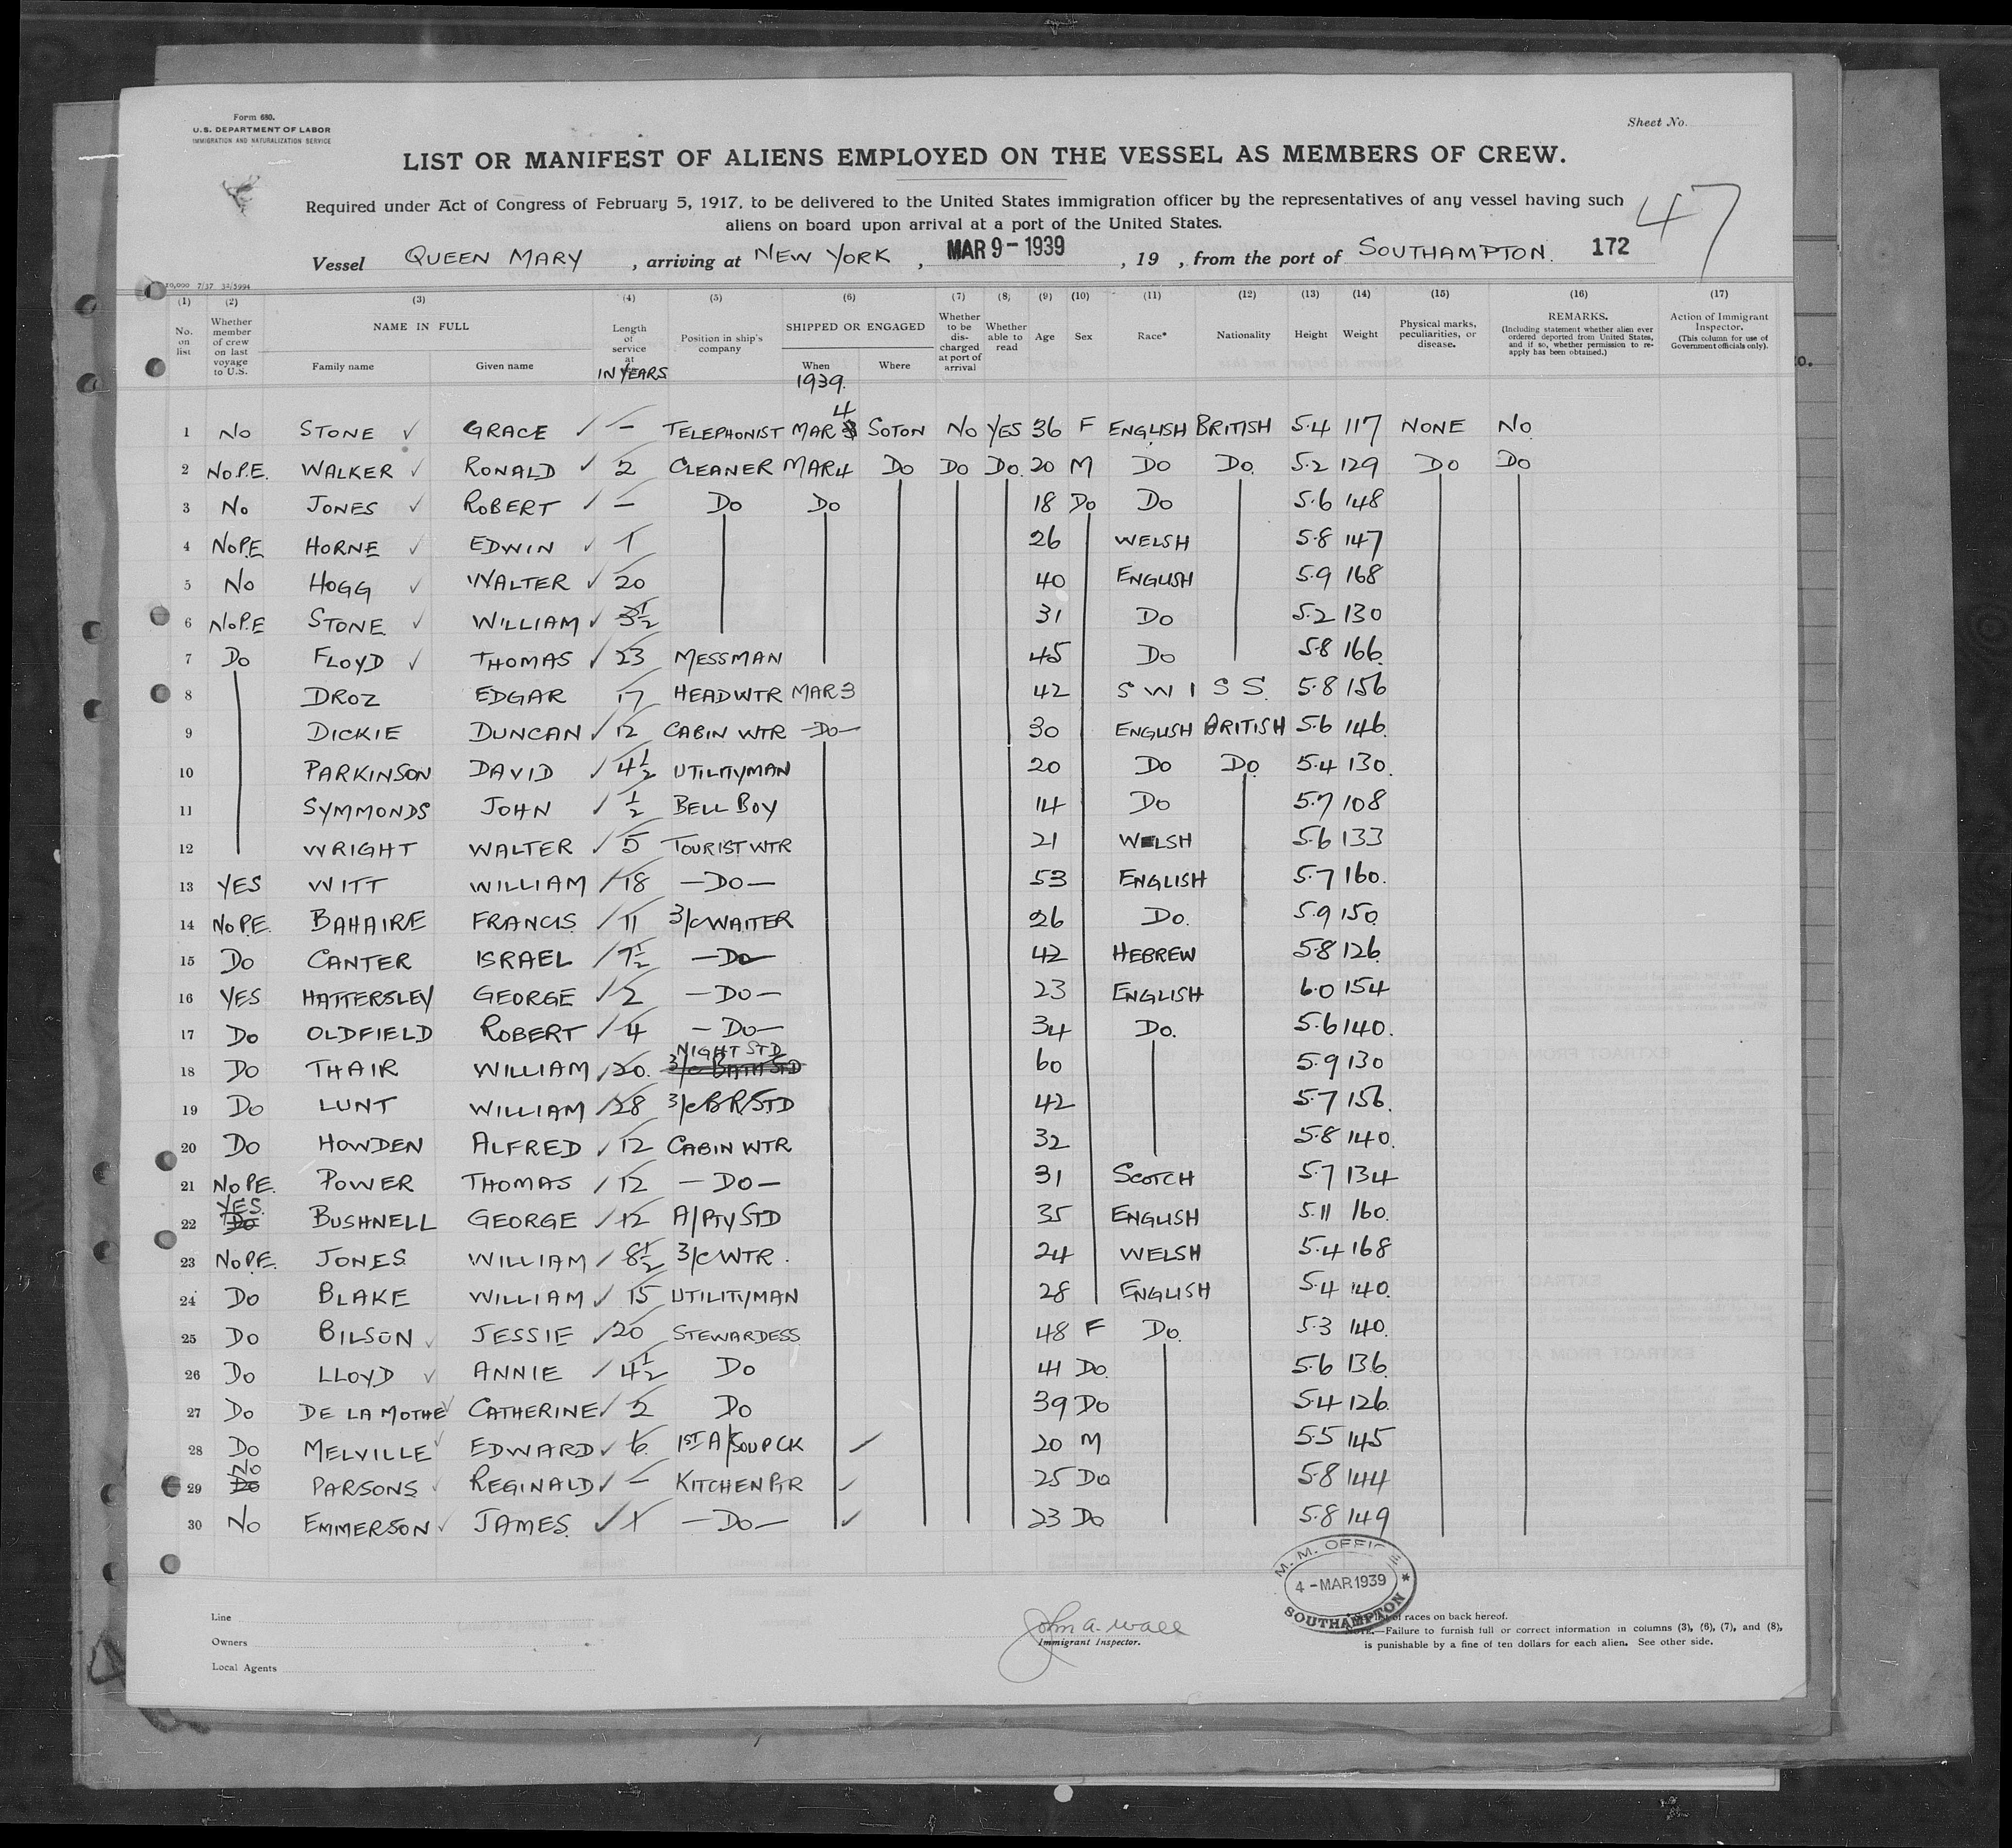 Form 680.
U.S. DEPARTMENT OF LABOR
IMMIGRATION AND NATURALIZATION SERVICE
Sheet No.
LIST OR MANIFEST OF ALIENS EMPLOYED ON THE VESSEL AS MEMBERS OF CREW.
Required under Act of Congress of February 5, 1917, to be delivered to the United States immigration officer by the representatives of any vessel having such
aliens on board upon arrival at a port of the United States.
47
Vessel QUEEN MARY , arriving at NEW YORK , MAR 9 - 1939 , 19 , from the port of SOUTHAMPTON. 172
(1) (2) (3) (4) (5) (6) (7) (8) (9) (10) (11) (12) (13) (14) (15) (16) (17)
No. on list
Whether member of crew on last voyage to U.S.
NAME IN FULL
Family name Given name
Length of service at IN YEARS
Position in ship's company
SHIPPED OR ENGAGED
When Where
1939.
Whether to be discharged at port of arrival
Whether able to read
Age Sex Race* Nationality Height Weight
Physical marks, peculiarities, or disease.
REMARKS.
(Including statement whether alien ever ordered deported from United States, and if so, whether permission to re-apply has been obtained.)
Action of Immigrant Inspector.
(This column for use of Government officials only).
1 NO STONE ✓ GRACE ✓ – TELEPHONIST MAR 4 SOTON NO YES 36 F ENGLISH BRITISH 5.4 117 NONE NO
2 NO.P.E. WALKER ✓ RONALD ✓ 2 CLEANER MAR 4 DO DO DO. 20 M DO DO. 5.2 129 DO DO
3 NO JONES ✓ ROBERT ✓ – DO DO 18 DO DO 5.6 148
4 NOP.E HORNE ✓ EDWIN ✓ 1 26 WELSH 5.8 147
5 NO HOGG ✓ WALTER ✓ 20 40 ENGLISH 5.9 168
6 NOP.E STONE ✓ WILLIAM ✓ 3½ 31 DO 5.2 130
7 DO FLOYD ✓ THOMAS ✓ 23 MESSMAN 45 DO 5.8 166
8 DROZ EDGAR 17 HEAD WTR MAR 3 42 SWISS 5.8 156
9 DICKIE DUNCAN ✓ 12 CABIN WTR –DO– 30 ENGLISH BRITISH 5.6 146
10 PARKINSON DAVID ✓ 4½ UTILITYMAN 20 DO DO 5.4 130.
11 SYMMONDS JOHN ✓ ½ BELL BOY 14 DO 5.7 108
12 WRIGHT WALTER ✓ 5 TOURIST WTR 21 WELSH 5.6 133
13 YES WITT WILLIAM ✓ 18 –DO– 53 ENGLISH 5.7 160.
14 NOP.E. BAHAIRE FRANCIS ✓ 11 3/C WAITER 26 DO. 5.9 150
15 DO CANTER ISRAEL ✓ 7½ –DO– 42 HEBREW 5.8 126
16 YES HATTERSLEY GEORGE ✓ 2 –DO– 23 ENGLISH 6.0 154
17 DO OLDFIELD ROBERT ✓ 4 –DO– 34 DO. 5.6 140.
NIGHT STD
18 DO THAIR WILLIAM ✓ 20. 3/C BATH STD 60 5.9 130
19 DO LUNT WILLIAM ✓ 28 3/C B.R. STD 42 5.7 156.
20 DO HOWDEN ALFRED ✓ 12 CABIN WTR 32 5.8 140.
21 NOP.E. POWER THOMAS ✓ 12 –DO– 31 SCOTCH 5.7 134
YES
22 DO BUSHNELL GEORGE ✓ 12 A/PTY STD 35 ENGLISH 5.11 160.
23 NOP.E. JONES WILLIAM ✓ 8½ 3/C WTR. 24 WELSH 5.4 168
24 DO BLAKE WILLIAM ✓ 15 UTILITYMAN 28 ENGLISH 5.4 140.
25 DO BILSON ✓ JESSIE ✓ 20 STEWARDESS 48 F DO. 5.3 140.
26 DO LLOYD ✓ ANNIE ✓ 4½ DO 41 DO. 5.6 136
27 DO DE LA MOTHE ✓ CATHERINE ✓ 2 DO 39 DO 5.4 126.
28 DO MELVILLE ✓ EDWARD ✓ 6 1ST A/SOUP CK ✓ 20 M 5.5 145
NO
29 DO PARSONS ✓ REGINALD ✓ – KITCHEN PTR ✓ 25 DO 5.8 144
30 NO EMMERSON ✓ JAMES. ✓ 1 –DO– ✓ 23 DO 5.8 149
M. M. OFFICE
4 - MAR 1939
SOUTHAMPTON
Line
Owners
Local Agents
John A. Wall
Immigrant Inspector.
of races on back hereof.
NOTE.—Failure to furnish full or correct information in columns (3), (6), (7), and (8),
is punishable by a fine of ten dollars for each alien. See other side.